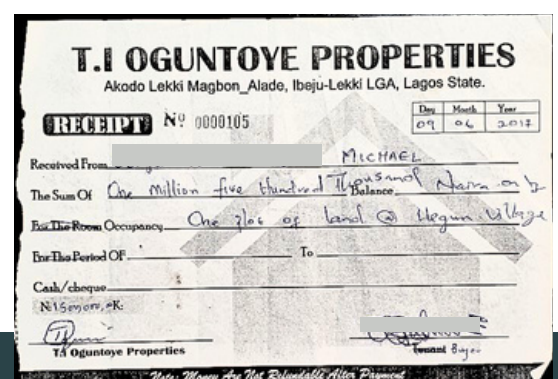 T.I OGUNTOYE PROPERTIES
Akodo Lekki Magbon_Alade, Ibeju-Lekki LGA, Lagos State.
Day Month Year
RECEIPT Nº 0000105
09 06 2017
Received From MICHAEL
The Sum Of One Million five Hundred Thousand Naira only
Balance
For The Room Occupancy One Plot of land @ Village
For The Period OF To
Cash/cheque
N: K:
T.I Oguntoye Properties Tenant Buyer
Note: Money Are Not Refundable After Payment